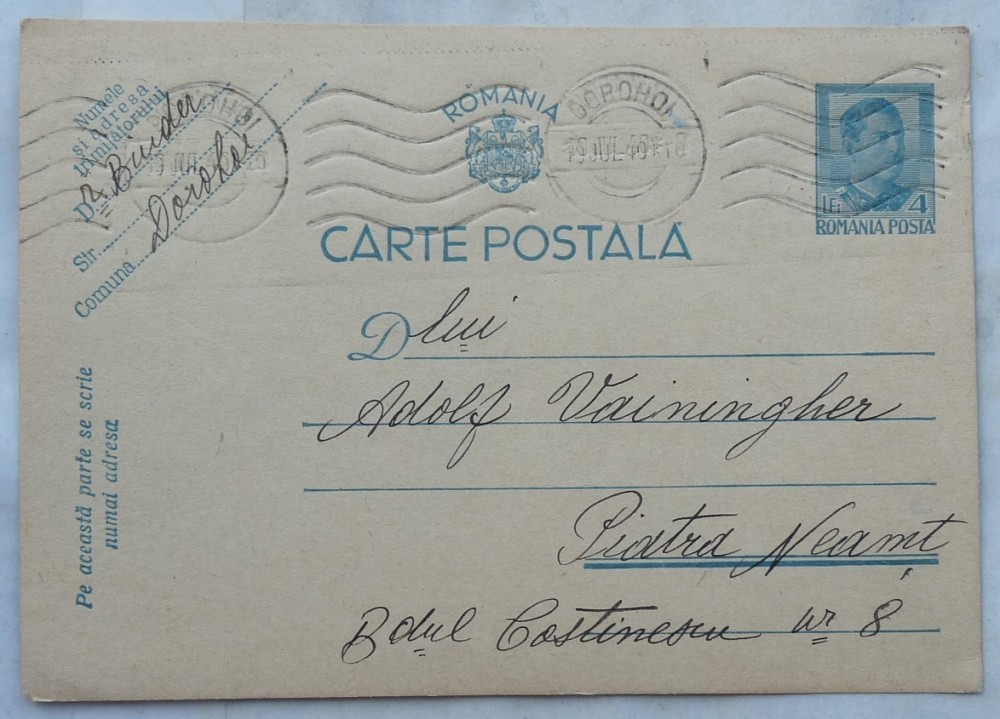 Numele
și adresa
trimițătorului
Dr Binder
Str.
Comuna Dorohoi
ROMANIA
DOROHOI
19 JUL. 40 * 10
LEI 4
ROMANIA POSTA
CARTE POSTALĂ
Dlui
Adolf Vainingher
Piatra Neamț
Bdul Costinescu nr 8
Pe această parte se scrie
numai adresa